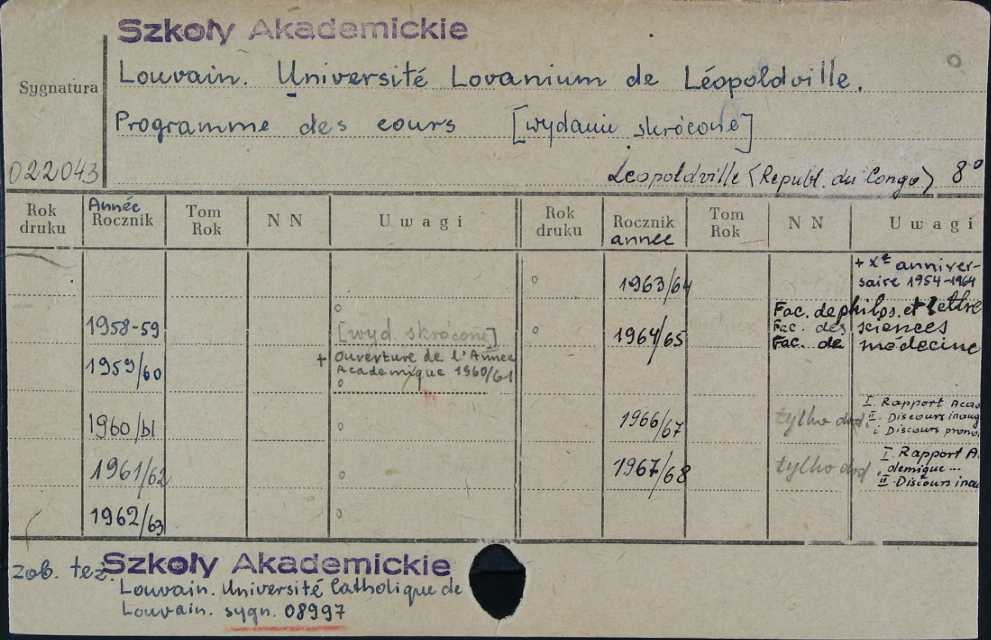 Szkoły Akademickie
Sygnatura
Louvain. Université Lovanium de Léopoldville.
Programme des cours [wydanie skrócone]
022043
Leopoldville (Republ. du Congo) 8°
Rok druku
Année Rocznik
Tom Rok
N N
Uwagi
Rok druku
Rocznik année
Tom Rok
N N
Uwagi
1958-59
[wyd. skrócone]
1959/60
+ Ouverture de l'Année
Academique 1960/61
1960/61
1961/62
1962/63
1963/64
+ Xe anniver-
saire 1954-1964
1964/65
Fac. de philos. et lettre
Fac. des sciences
Fac. de médecine
1966/67
tylko
I. Rapport Aca
II. Discours inaug
Discours prono
1967/68
tylko
I. Rapport A.
demique...
II. Discours inau
zob. też. Szkoły Akademickie
Louvain. Université Catholique de
Louvain. sygn. 08997